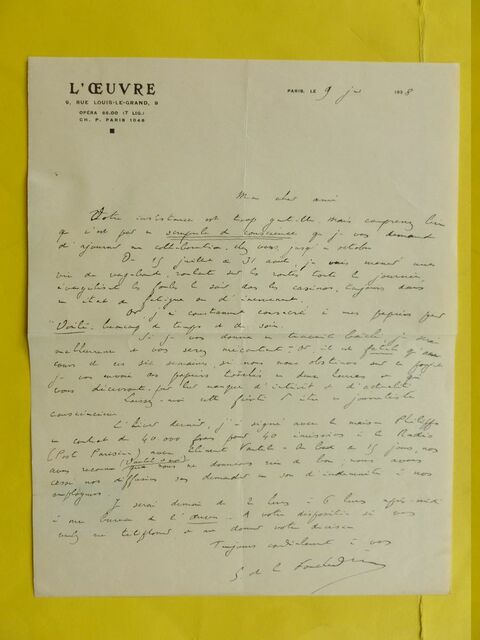 L'ŒUVRE
9, RUE LOUIS-LE-GRAND, 9
OPÉRA 65.00 (7 LIG.)
CH. P. PARIS 1046
PARIS, LE 9 1938
Mon cher ami
Votre insistance est trop gentille. Mais comprenez bien
que c'est par un scrupule de conscience que je vous demande
d'ajourner ma collaboration chez vous jusqu'à octobre
Du 15 juillet au 31 août, je vais mener une
vie de vagabond, roulant sur les routes toute la journée
évangélisant les foules le soir dans les casinos, toujours dans
un état de fatigue ou d'énervement.
Or j'ai constamment consacré à mes papiers pour
"Voilà" beaucoup de temps et de soin.
Si je vous donne un travail bâclé, je serai
malheureux et vous serez mécontent. Or il est fatal qu'au
cours de ces six semaines, si nous nous obstinons sur ce projet
je vous envoie des papiers bâclés en deux heures et qui
vous décevront par leur manque d'intérêt et d'actualité
Laissez-moi cette fierté d'être un journaliste
consciencieux.
L'hiver dernier, j'ai signé avec la maison Philipps
un contrat de 40 000 francs pour 40 émissions à la Radio
(Poste Parisien) avec Clément Vautel. Au bout de 15 jours, nous
avons reconnu (Vautel et moi) que nous ne donnions rien de bon. nous avons
cessé nos diffusions sans demander un sou d'indemnité à nos
employeurs.
Je serai demain de 2 heures à 6 heures après-midi
à mon bureau de l'Œuvre. A votre disposition si vous
voulez me téléphoner et me donner votre décision
Toujours cordialement à vous
G de la Fouchardière